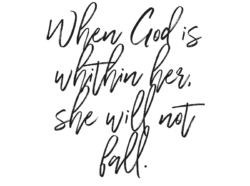 When God is
whithin her,
she will not
fall.